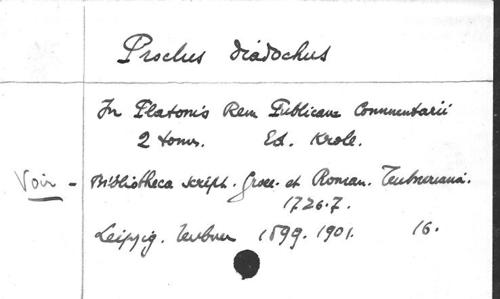 Proclus Diadochus
In Platonis Rem Publicam Commentarii
2 tom. Ed. Krole.
Voir - Bibliotheca script. Graec. et Roman. Teubneriana.
1726.7.
Leipzig. Teubner 1899. 1901. 16.